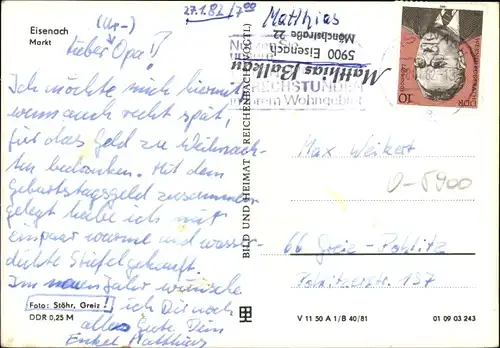 Eisenach
Markt
(Ur-)
Lieber Opa!
27.1.82/7⁰⁰
Matthias
5900 Eisenach
Mönchstraße 22
Matthias Balkau
SPRECHSTUNDEN
Wohngebiet
DDR
10
Ich möchte mich hiermit,
wenn auch recht spät,
für das Geld zu Weihnach-
ten bedanken. Mit dem
Geburtstagsgeld zusammen
gelegt habe ich mir
ein paar warme und wasser-
dichte Stiefel gekauft.
Im neuen Jahr wünsche
ich Dir noch
alles Gute. Dein
Enkel Matthias
Foto: Stöhr, Greiz!
DDR 0,25 M
BILD UND HEIMAT REICHENBACH (VOGTL)
Max Weikert
O-5900
66 Greiz-Pohlitz
137
V 11 50 A 1/B 40/81
01 09 03 243